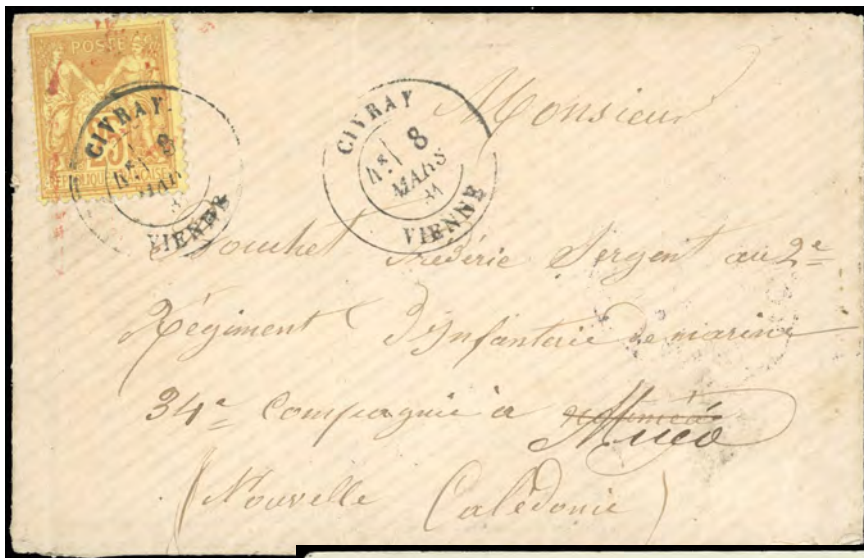 POSTE
25
REPUBLIQUE FRANCAISE
CIVRAY
8
MARS
VIENNE
CIVRAY
8
MARS
81
VIENNE
Monsieur
Frédéric Sergent au 2e
Régiment d'Infanterie de marine
34e Compagnie à
(Nouvelle Calédonie)